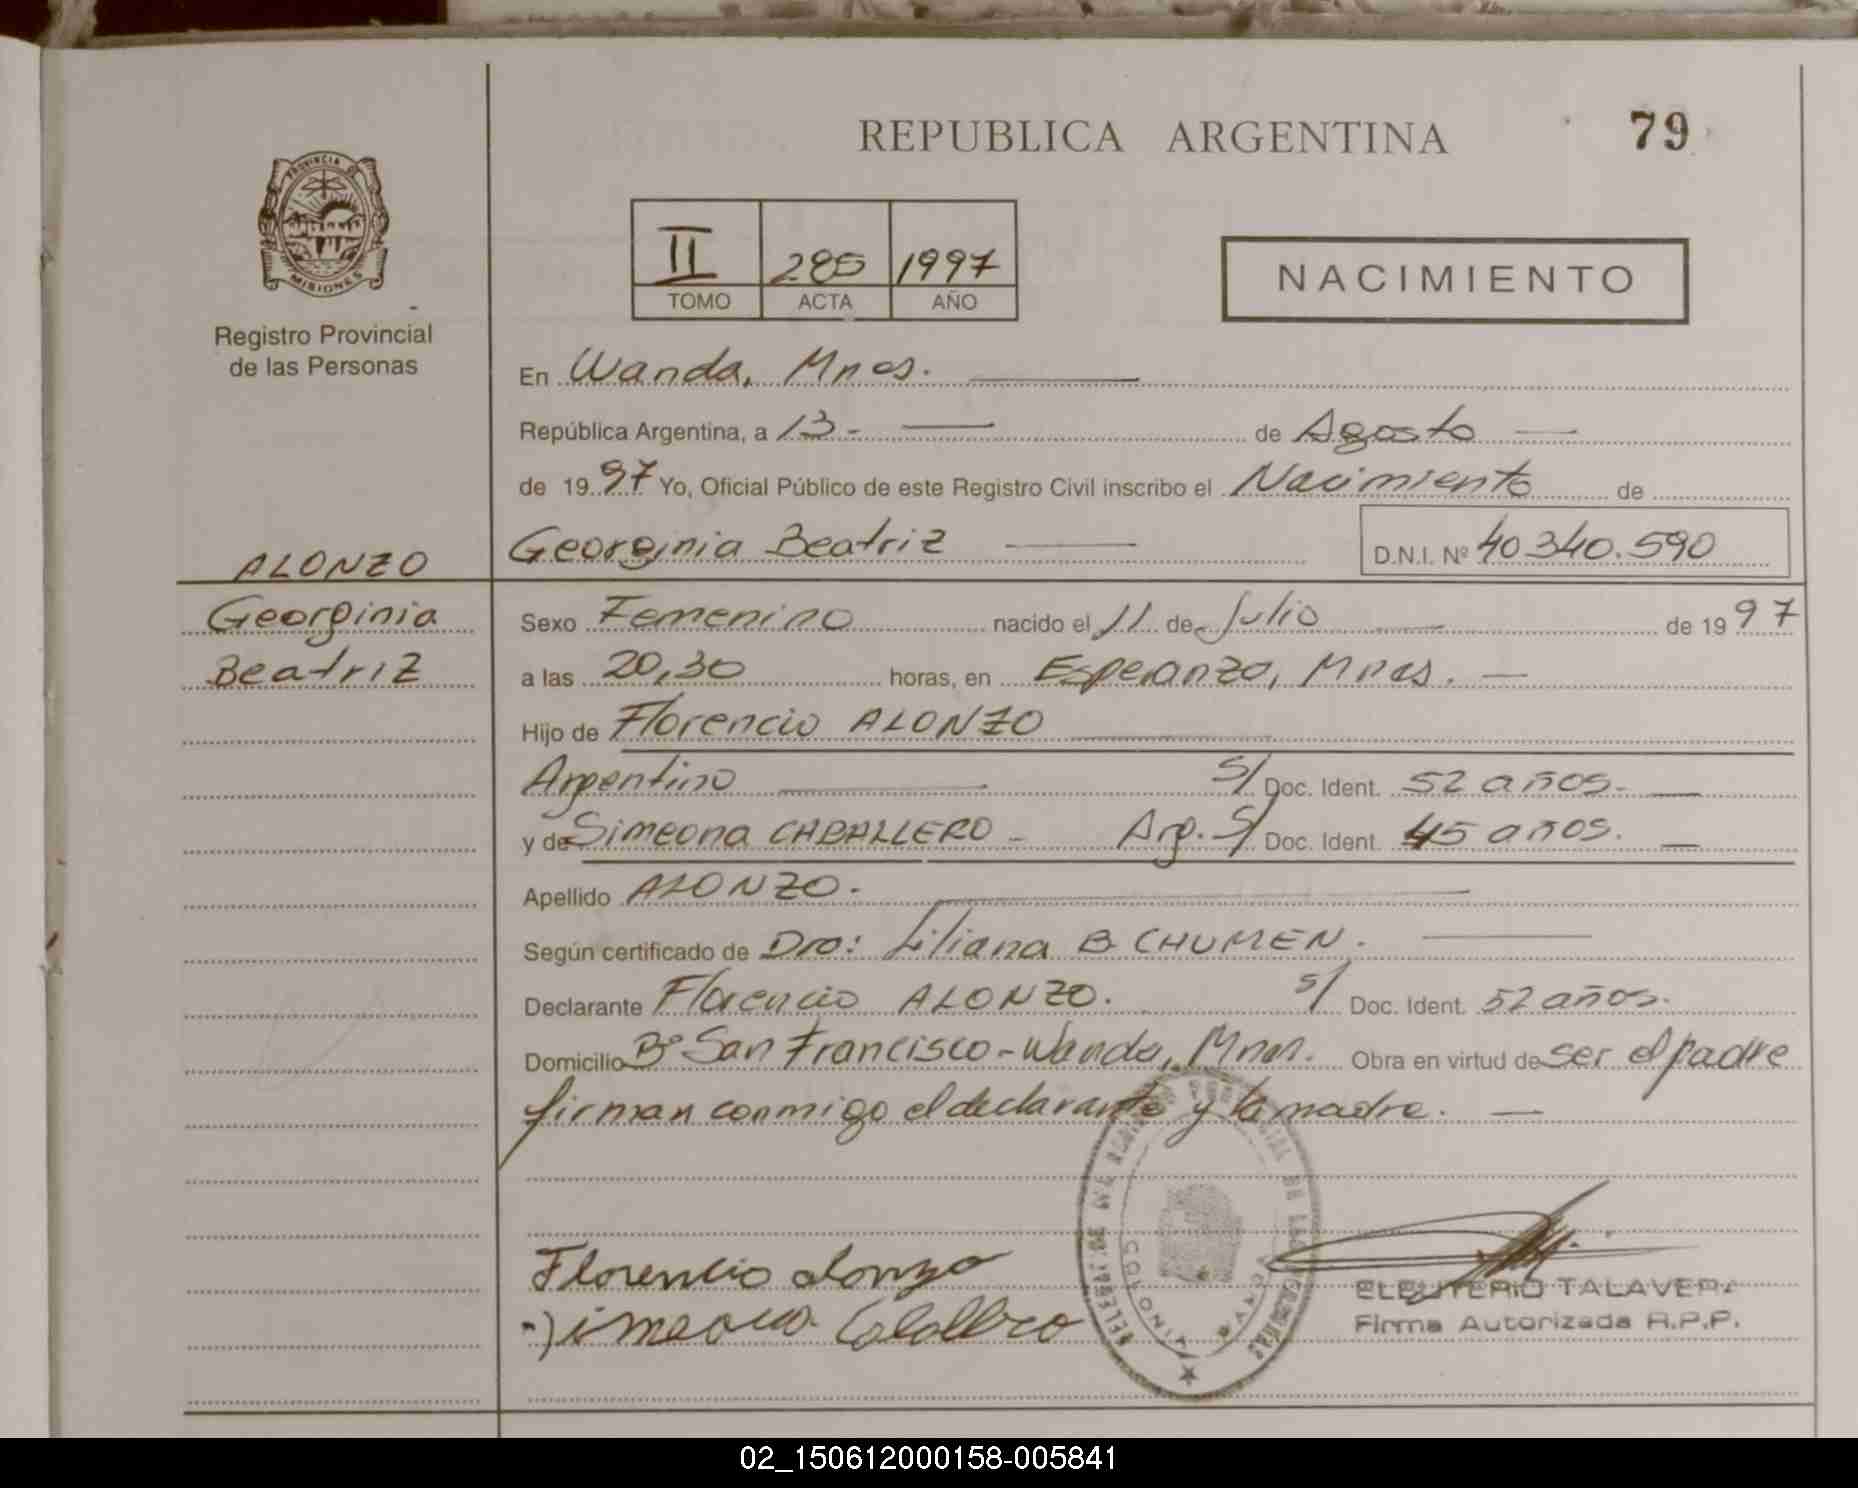 REPUBLICA ARGENTINA
79
PROVINCIA DE
MISIONES
Registro Provincial
de las Personas
II 285 1997
TOMO ACTA AÑO
NACIMIENTO
En Wanda, Mnes.
República Argentina, a 13- de Agosto
de 1997 Yo, Oficial Público de este Registro Civil inscribo el Nacimiento de
Georginia Beatriz D.N.I. Nº 40340.590
ALONZO
Georginia
Beatriz
Sexo Femenino nacido el 11 de Julio de 1997
a las 20,30 horas, en Esperanza, Mnes.
Hijo de Florencio ALONZO
Argentino S/ Doc. Ident. 52 años.
y de Simeona CABALLERO - Arg. S/ Doc. Ident. 45 años.
Apellido ALONZO.
Según certificado de Dra: Liliana B. CHUMEN.
Declarante Florencio ALONZO. S/ Doc. Ident. 52 años.
Domicilio Bº San Francisco-Wanda, Mnes. Obra en virtud de ser el padre
firman conmigo el declarante y la madre.
Florencio Alonzo
Simeona
ELEUTERIO TALAVERA
Firma Autorizada R.P.P.
02_150612000158-005841